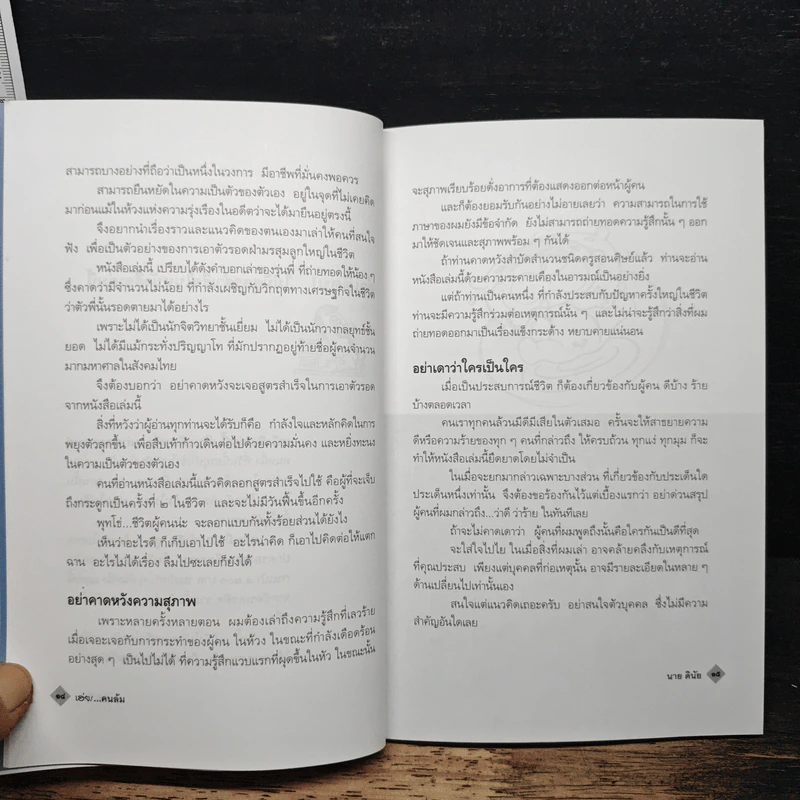 สามารถบางอย่างที่ถือว่าเป็นหนึ่งในวงการ มีอาชีพที่มั่นคงพอควร
สามารถยืนหยัดในความเป็นตัวของตัวเอง อยู่ในจุดที่ไม่เคยคิด
มาก่อนแม้ในห้วงแห่งความรุ่งเรืองในอดีตว่าจะได้มายืนอยู่ตรงนี้
จึงอยากนำเรื่องราวและแนวคิดของตนเองมาเล่าให้คนที่สนใจ
ฟัง เพื่อเป็นตัวอย่างของการเอาตัวรอดฝ่ามรสุมลูกใหญ่ในชีวิต
หนังสือเล่มนี้ เปรียบได้ดังคำบอกเล่าของรุ่นพี่ ที่ถ่ายทอดให้น้อง ๆ
ซึ่งคาดว่ามีจำนวนไม่น้อย ที่กำลังเผชิญกับวิกฤตทางเศรษฐกิจในชีวิต
ว่าตัวพี่นั้นรอดตายมาได้อย่างไร
เพราะไม่ได้เป็นนักจิตวิทยาชั้นเยี่ยม ไม่ได้เป็นนักวางกลยุทธ์ชั้น
ยอด ไม่ได้มีแม้กระทั่งปริญญาโท ที่มักปรากฏอยู่ท้ายชื่อผู้คนจำนวน
มากมหาศาลในสังคมไทย
จึงต้องบอกว่า อย่าคาดหวังจะเจอสูตรสำเร็จในการเอาตัวรอด
จากหนังสือเล่มนี้
สิ่งที่หวังว่าผู้อ่านทุกท่านจะได้รับก็คือ กำลังใจและหลักคิดในการ
พยุงตัวลุกขึ้น เพื่อสืบเท้าก้าวเดินต่อไปด้วยความมั่นคง และหยิ่งทะนง
ในความเป็นตัวของตัวเอง
คนที่อ่านหนังสือเล่มนี้แล้วคิดลอกสูตรสำเร็จไปใช้ คือผู้ที่จะเจ็บ
ถึงกระดูกเป็นครั้งที่ ๒ ในชีวิต และจะไม่มีวันฟื้นขึ้นอีกครั้ง
พุทโธ่...ชีวิตผู้คนน่ะ จะลอกแบบกันทั้งร้อยส่วนได้ยังไง
เห็นว่าอะไรดี ก็เก็บเอาไปใช้ อะไรน่าคิด ก็เอาไปคิดต่อให้แตก
ฉาน อะไรไม่ได้เรื่อง ลืมไปซะเลยก็ยังได้
อย่าคาดหวังความสุภาพ
เพราะหลายครั้งหลายตอน ผมต้องเล่าถึงความรู้สึกที่เลวร้าย
เมื่อเจอะเจอกับการกระทำของผู้คน ในห้วง ในขณะที่กำลังเดือดร้อน
อย่างสุด ๆ เป็นไปไม่ได้ ที่ความรู้สึกแวบแรกที่ผุดขึ้นในหัว ในขณะนั้น
๑๔ เฮ่ย!...คนล้ม
จะสุภาพเรียบร้อยดั่งอาการที่ต้องแสดงออกต่อหน้าผู้คน
และก็ต้องยอมรับกันอย่างไม่อายเลยว่า ความสามารถในการใช้
ภาษาของผมยังมีข้อจำกัด ยังไม่สามารถถ่ายทอดความรู้สึกนั้น ๆ ออก
มาให้ชัดเจนและสุภาพพร้อม ๆ กันได้
ถ้าท่านคาดหวังสำบัดสำนวนชนิดครูสอนศิษย์แล้ว ท่านจะอ่าน
หนังสือเล่มนี้ด้วยความระคายเคืองในอารมณ์เป็นอย่างยิ่ง
แต่ถ้าท่านเป็นคนหนึ่ง ที่กำลังประสบกับปัญหาครั้งใหญ่ในชีวิต
ท่านจะมีความรู้สึกร่วมต่อเหตุการณ์นั้น ๆ และไม่น่าจะรู้สึกว่าสิ่งที่ผม
ถ่ายทอดออกมาเป็นเรื่องแข็งกระด้าง หยาบคายแน่นอน
อย่าเดาว่าใครเป็นใคร
เมื่อเป็นประสบการณ์ชีวิต ก็ต้องเกี่ยวข้องกับผู้คน ดีบ้าง ร้าย
บ้างตลอดเวลา
คนเราทุกคนล้วนมีดีมีเสียในตัวเสมอ ครั้นจะให้สาธยายความ
ดีหรือความร้ายของทุก ๆ คนที่กล่าวถึง ให้ครบถ้วน ทุกแง่ ทุกมุม ก็จะ
ทำให้หนังสือเล่มนี้ยืดยาดโดยไม่จำเป็น
ในเมื่อจะยกมากล่าวเฉพาะบางส่วน ที่เกี่ยวข้องกับประเด็นใด
ประเด็นหนึ่งเท่านั้น จึงต้องขอร้องกันไว้แต่เบื้องแรกว่า อย่าด่วนสรุป
ผู้คนที่ผมกล่าวถึง...ว่าดี ว่าร้าย ในทันทีเลย
ถ้าจะไม่คาดเดาว่า ผู้คนที่ผมพูดถึงนั้นคือใครกันเป็นดีที่สุด
จะใส่ใจไปไย ในเมื่อสิ่งที่ผมเล่า อาจคล้ายคลึงกับเหตุการณ์
ที่คุณประสบ เพียงแต่บุคคลที่ก่อเหตุนั้น อาจมีรายละเอียดในหลาย ๆ
ด้านเปลี่ยนไปเท่านั้นเอง
สนใจแต่แนวคิดเถอะครับ อย่าสนใจตัวบุคคล ซึ่งไม่มีความ
สำคัญอันใดเลย
นาย ดินัย ๑๕